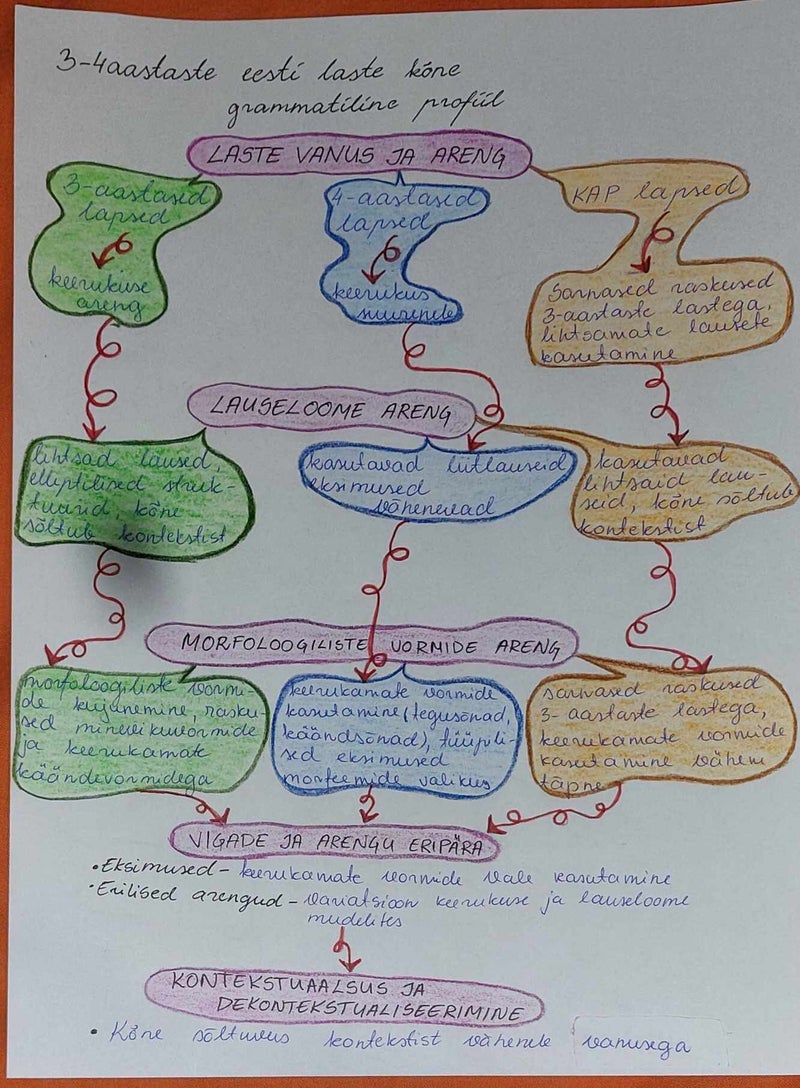 3-4aastaste eesti laste kõne
grammatiline profiil
LASTE VANUS JA ARENG
3-aastased
lapsed
keerukuse
areng
4-aastased
lapsed
keerukus
suureneb
KAP lapsed
Sarnased raskused
3-aastaste lastega,
lihtsamate lausete
kasutamine
LAUSELOOME ARENG
lihtsad laused,
elliptilised struk-
tuurid, kõne
sõltub kontekstist
kasutavad liitlauseid
eksimused
vähenevad
kasutavad
lihtsaid lau-
seid, kõne sõltub
kontekstist
MORFOLOOGILISTE VORMIDE ARENG
morfoloogiliste vormi-
de kujunemine, rasku-
sed minevikuvormide
ja keerukamate
käändevormidega
keerukamate vormide
kasutamine (tegusõnad,
käändsõnad), tüüpili-
sed eksimused
morfeemide valikus
sarnased raskused
3-aastaste lastega,
keerukamate vormide
kasutamine vähem
täpne
VIGADE JA ARENGU ERIPÄRA
• Eksimused - keerukamate vormide vale kasutamine
• Erilised arengud - variatsioon keerukuse ja lauseloome
mudelites
KONTEKSTUAALSUS JA
DEKONTEKSTUALISEERIMINE
• Kõne sõltuvus kontekstist väheneb vanusega